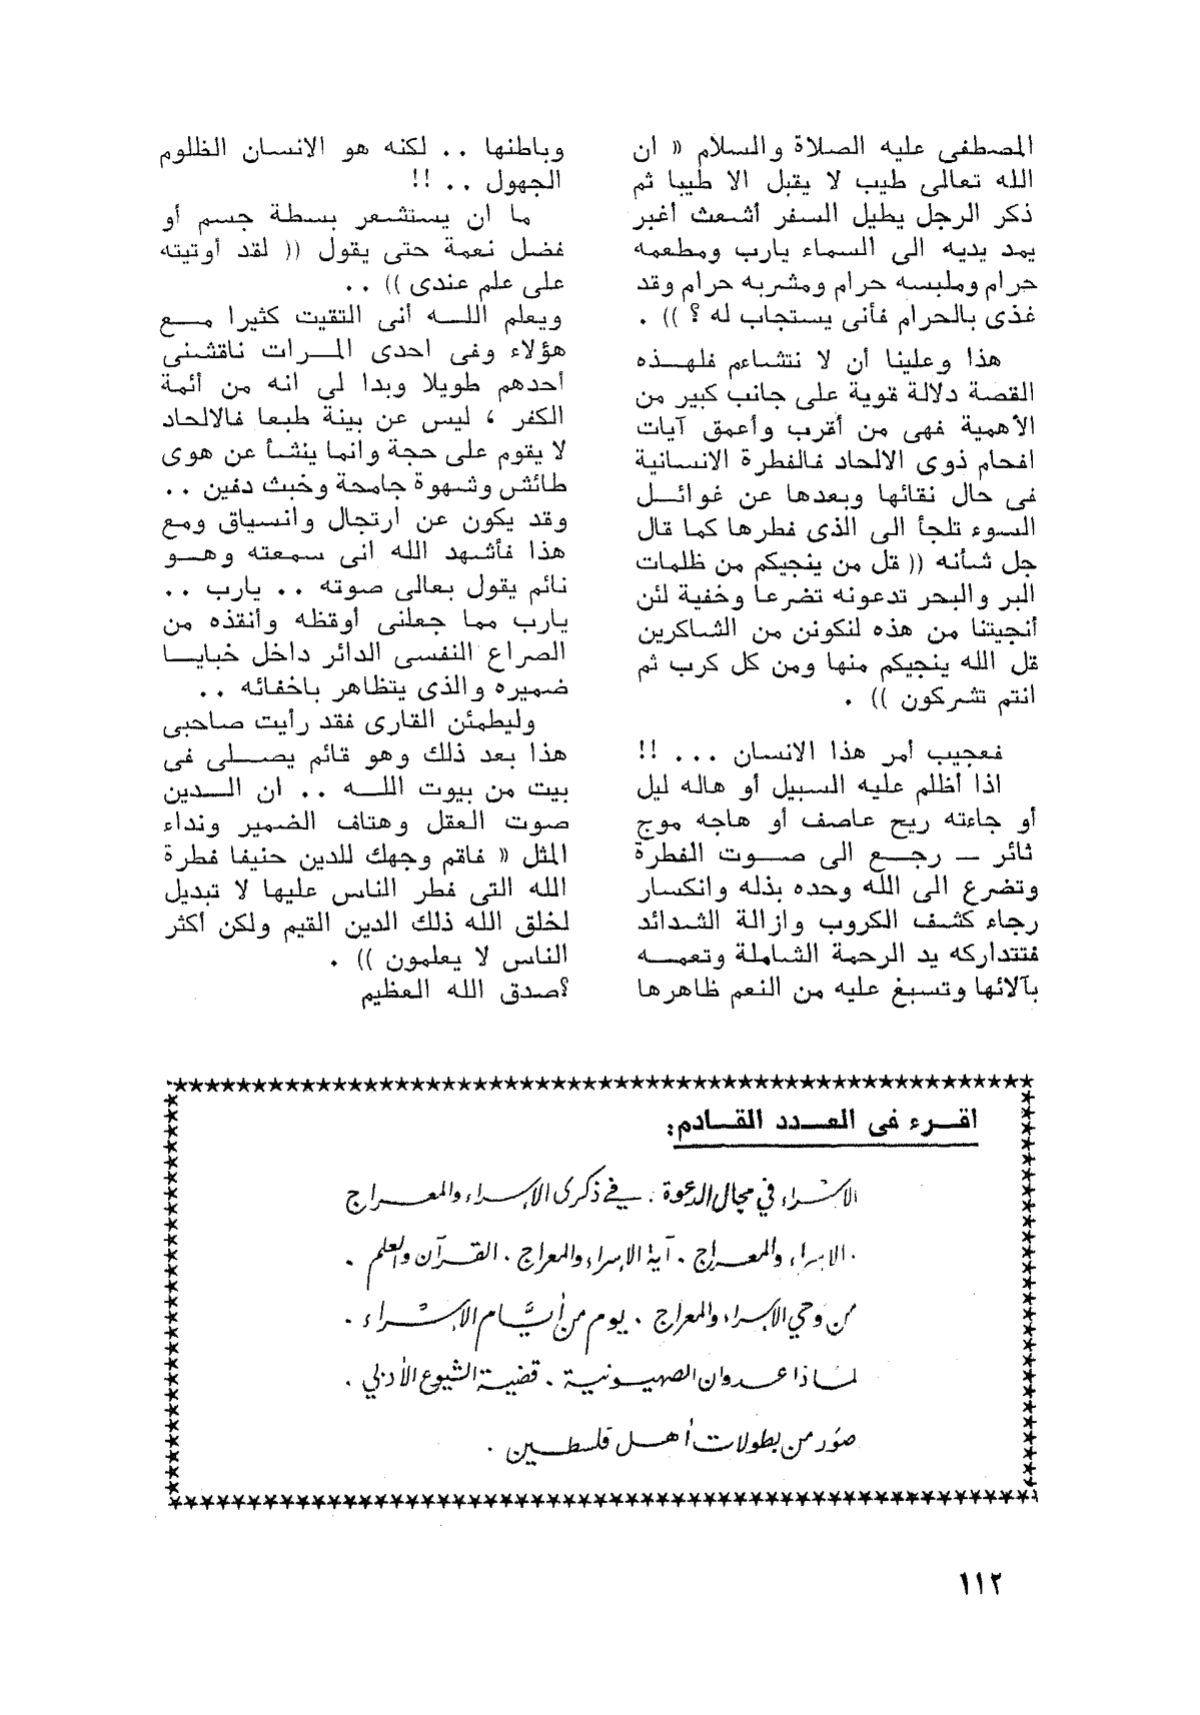 المصطفى عليه الصلاة والسلام « ان
الله تعالى طيب لا يقبل الا طيبا ثم
ذكر الرجل يطيل السفر أشعث أغبر
يمد يديه الى السماء يارب ومطعمه
حرام وملبسه حرام ومشربه حرام وقد
غذى بالحرام فأنى يستجاب له ؟ )) .
هذا وعلينا أن لا نتشاءم فلهـــذه
القصة دلالة قوية على جانب كبير من
الأهمية فهى من أقرب وأعمق آيات
افحام ذوى الالحاد فالفطرة الانسانية
فى حال نقائها وبعدها عن غوائـــل
السوء تلجأ الى الذى فطرها كما قال
جل شأنه (( قل من ينجيكم من ظلمات
البر والبحر تدعونه تضرعا وخفية لئن
أنجيتنا من هذه لنكونن من الشاكرين
قل الله ينجيكم منها ومن كل كرب ثم
انتم تشركون )) .
فعجيب أمر هذا الانسان . . . !!
اذا أظلم عليه السبيل أو هاله ليل
أو جاءته ريح عاصف أو هاجه موج
ثائر — رجـــع الى صـــوت الفطرة
وتضرع الى الله وحده بذله وانكسار
رجاء كشف الكروب وازالة الشدائد
فتتداركه يد الرحمة الشاملة وتعمـــه
بآلائها وتسبغ عليه من النعم ظاهرها
وباطنها . . لكنه هو الانسان الظلوم
الجهول . . !!
ما ان يستشعر بسطة جسم أو
فضل نعمة حتى يقول (( لقد أوتيته
على علم عندى )) . .
ويعلم اللـــه أنى التقيت كثيرا مـــع
هؤلاء وفى احدى المـــرات ناقشنى
أحدهم طويلا وبدا لى انه من أئمة
الكفر ، ليس عن بينة طبعا فالالحاد
لا يقوم على حجة وانما ينشأ عن هوى
طائش وشهوة جامحة وخبث دفين . .
وقد يكون عن ارتجال وانسياق ومع
هذا فأشهد الله انى سمعته وهـــو
نائم يقول بعالى صوته . . يارب . .
يارب مما جعلنى أوقظه وأنقذه من
الصراع النفسى الدائر داخل خبايـــا
ضميره والذى يتظاهر باخفائه . .
وليطمئن القارى فقد رأيت صاحبى
هذا بعد ذلك وهو قائم يصـــلى فى
بيت من بيوت اللـــه . . ان الـــدين
صوت العقل وهتاف الضمير ونداء
المثل « فاقم وجهك للدين حنيفا فطرة
الله التى فطر الناس عليها لا تبديل
لخلق الله ذلك الدين القيم ولكن أكثر
الناس لا يعلمون )) .
؟صدق الله العظيم
اقـــرء فى العـــدد القـــادم:
الإسْراء في مجال الدعوة . في ذكرى الإســراء والمعـــراج
. الإسراء والمعـــراج . آية الإسراء والمعراج . القـــرآن والعلم .
من وحي الإسراء والمعراج . يوم من أيَّـــام الإســـراء .
لمـــاذا عـــدوان الصهيـــونية . قضيـــة الشيوع الأدبي .
صوَر من بطولات أهـــل فلسطـــين .
١١٢